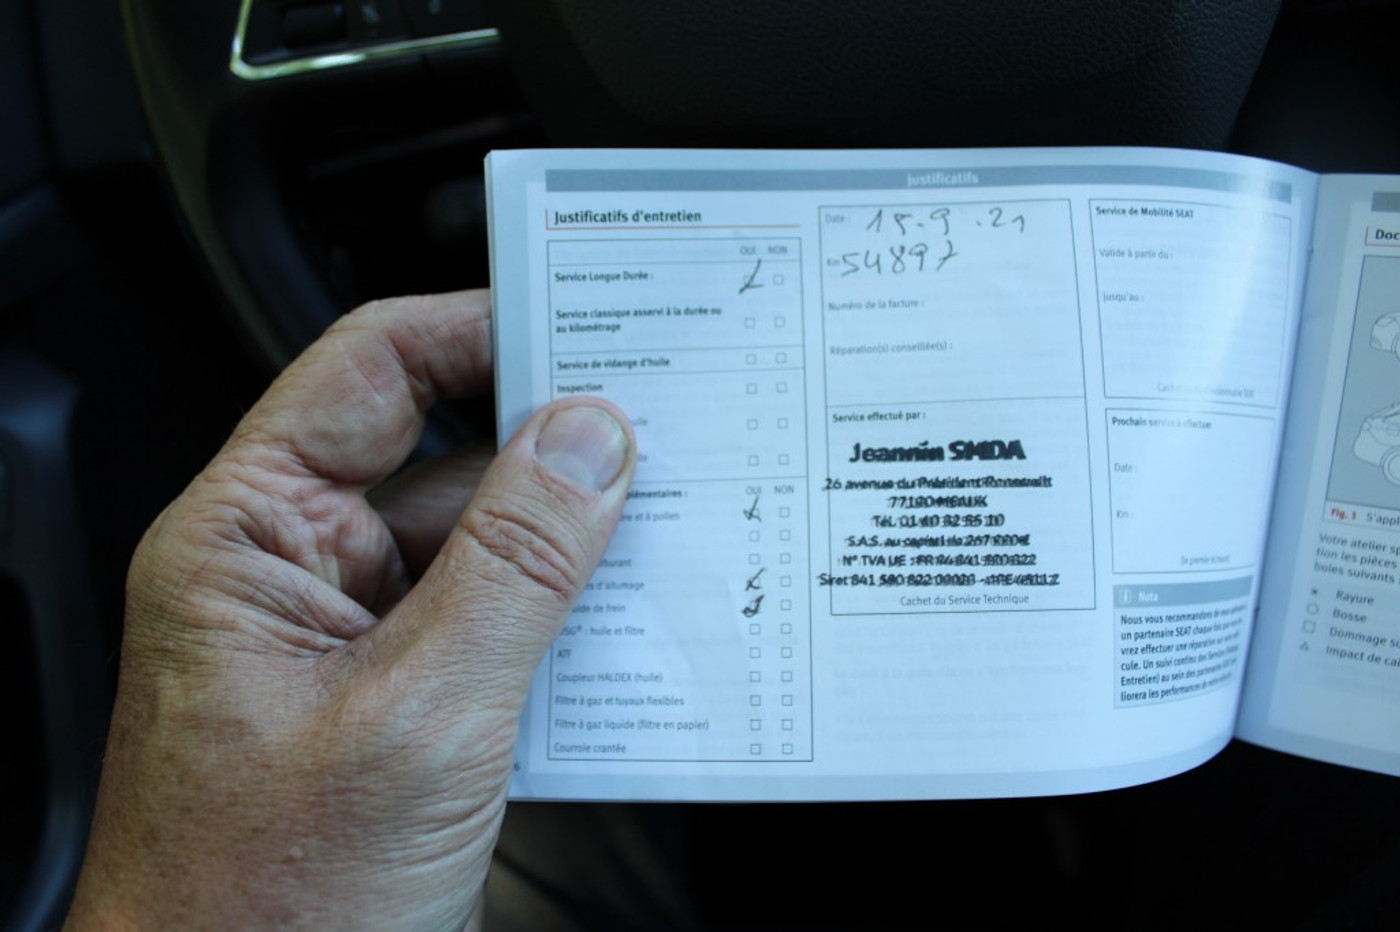 Justificatifs
Justificatifs d'entretien
OUI NON
Service Longue Durée :
Service classique asservi à la durée ou
au kilométrage
Service de vidange d'huile
Inspection
uile
plémentaires :
OUI NON
re et à pollen
burant
s d'allumage
uide de frein
DSG® : huile et filtre
ATF
Coupleur HALDEX (huile)
Filtre à gaz et tuyaux flexibles
Filtre à gaz liquide (filtre en papier)
Courroie crantée
Date : 15.9.21
Km 54897
Numéro de la facture :
Réparation(s) conseillée(s) :
Service effectué par :
Jeannin SMDA
26 avenue du Président
MEAUX
Tél. 01
S.A.S. au capital de
N° TVA UE : FR
Siret 841
Cachet du Service Technique
Service de Mobilité SEAT
Valide à partir du :
Jusqu'au :
Prochain service à effectuer
Date :
Km :
Nota
Nous vous recommandons de
un partenaire SEAT chaque fois que
vrez effectuer une réparation sur
cule. Un suivi continu des
Entretien) au sein des partenaires
liorera les performances de votre
Doc
Fig. 1 S'appl
Votre atelier sp
tion les pièces
boles suivants
Rayure
Bosse
Dommage
Impact de